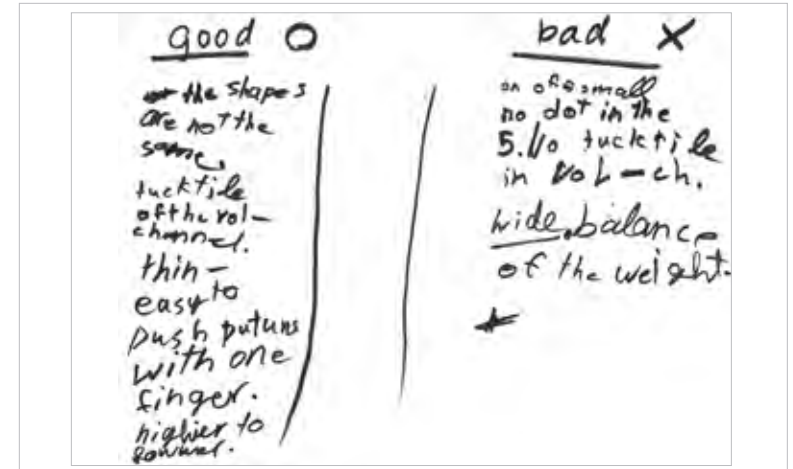 good
the shapes
are not the
same.
tucktile
of the vol-
channel.
thin-
easy to
push putuns
with one
finger.
higher to
bad
on off small
no dot in the
5. No tucktile
in vol-ch.
wide. balance
of the weight.